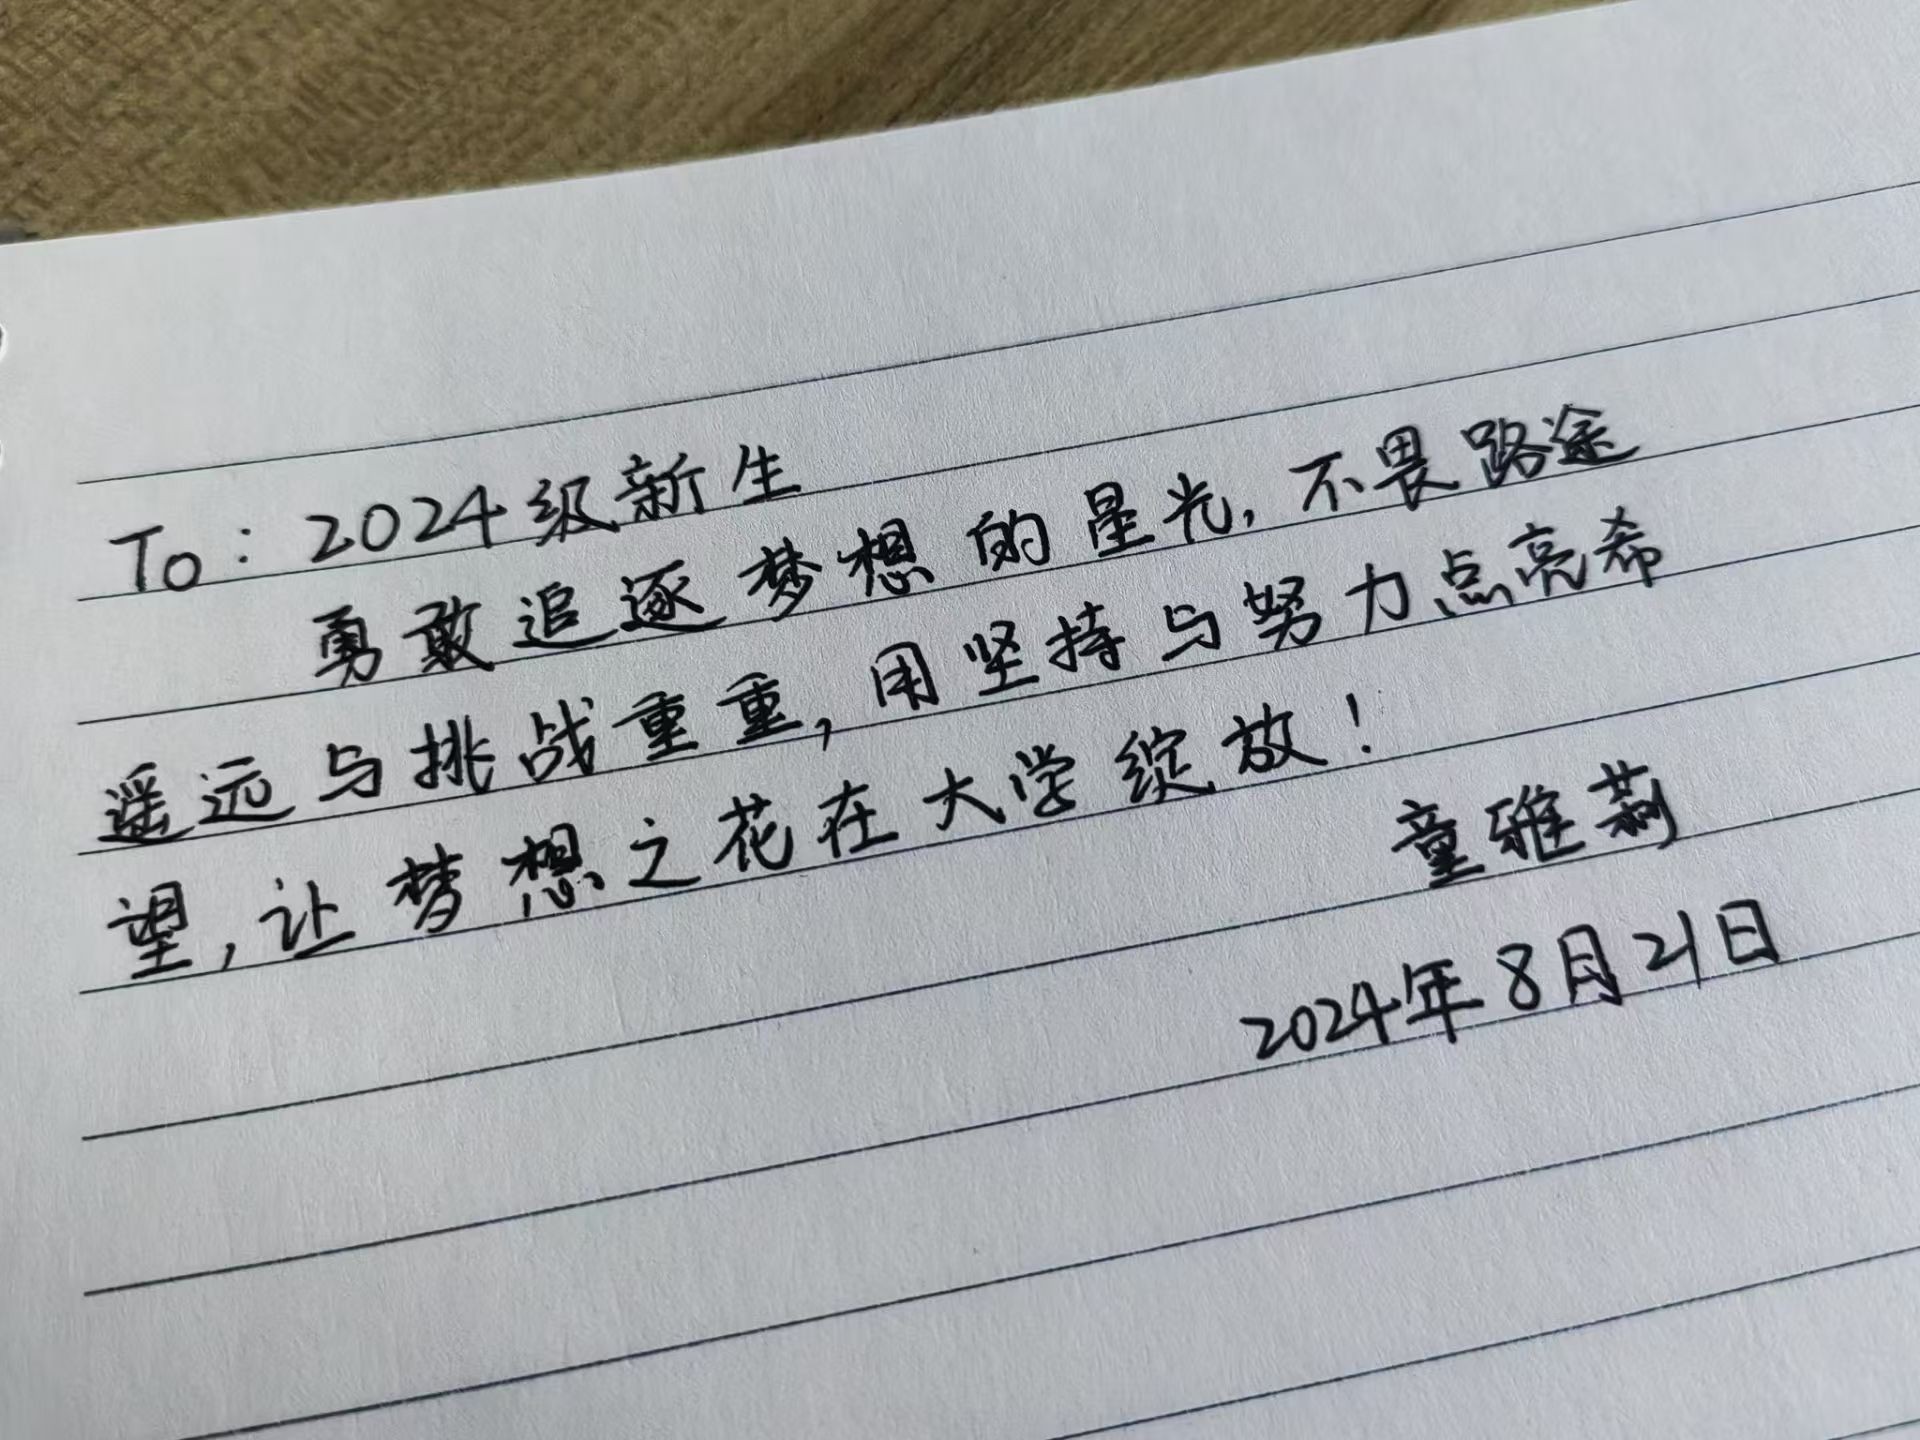 To：2024级新生
勇敢追逐梦想的星光，不畏路途
遥远与挑战重重，用坚持与努力点亮希
望，让梦想之花在大学绽放！
童雅莉
2024年8月21日